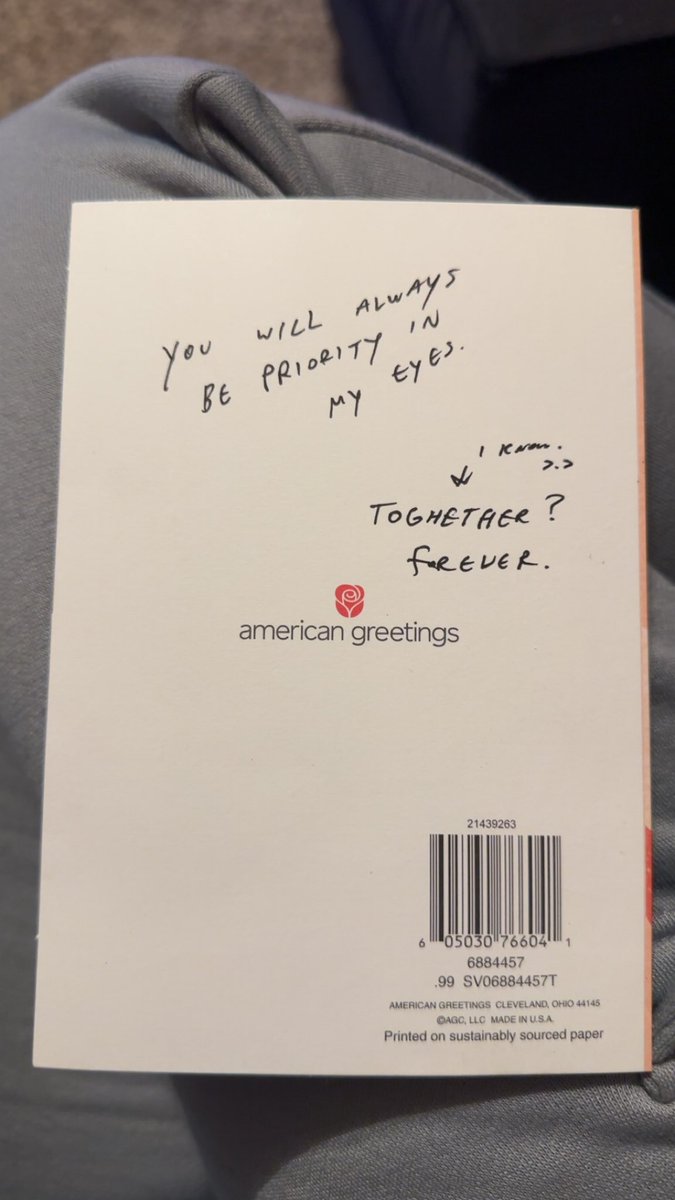 YOU WILL ALWAYS
BE PRIORITY IN
MY EYES.
I KNOW.
>.>
TOGHETHER?
FOREVER.
american greetings
21439263
6 05030 76604 1
6884457
.99 SV06884457T
AMERICAN GREETINGS CLEVELAND, OHIO 44145
©AGC, LLC MADE IN U.S.A.
Printed on sustainably sourced paper